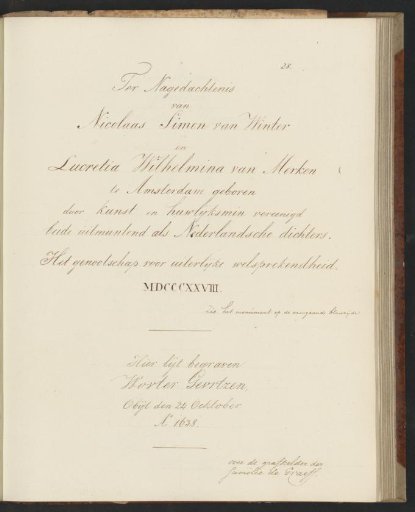 28.
Ter Nagedachtenis
van
Nicolaas Simon van Winter
en
Lucretia Wilhelmina van Merken
te Amsterdam geboren
door kunst en huwlijksmin vereenigd
beide uitmuntend als Nederlandsche dichters.
Het genootschap voor uiterlijke welsprekendheid.
MDCCCXXVIII.
zie het monument op de
Hier lijt begraven
Worter Gerrtzen
Obijt den 24 Ocktober
Aº 1638.
over de grafkelder der
familie de Graeff